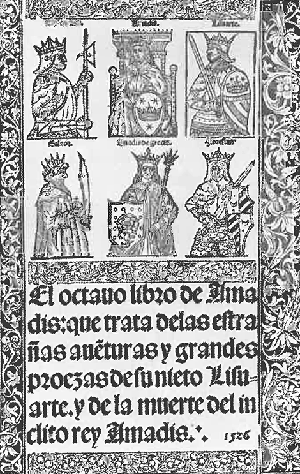 Amadis.
Lisuarte.
El octauo libro de Ama
dis: que trata delas estra
ñas auẽturas y grandes
proezas de su nieto Lisu-
arte. y de la muerte del in
clito rey Amadis. 1526